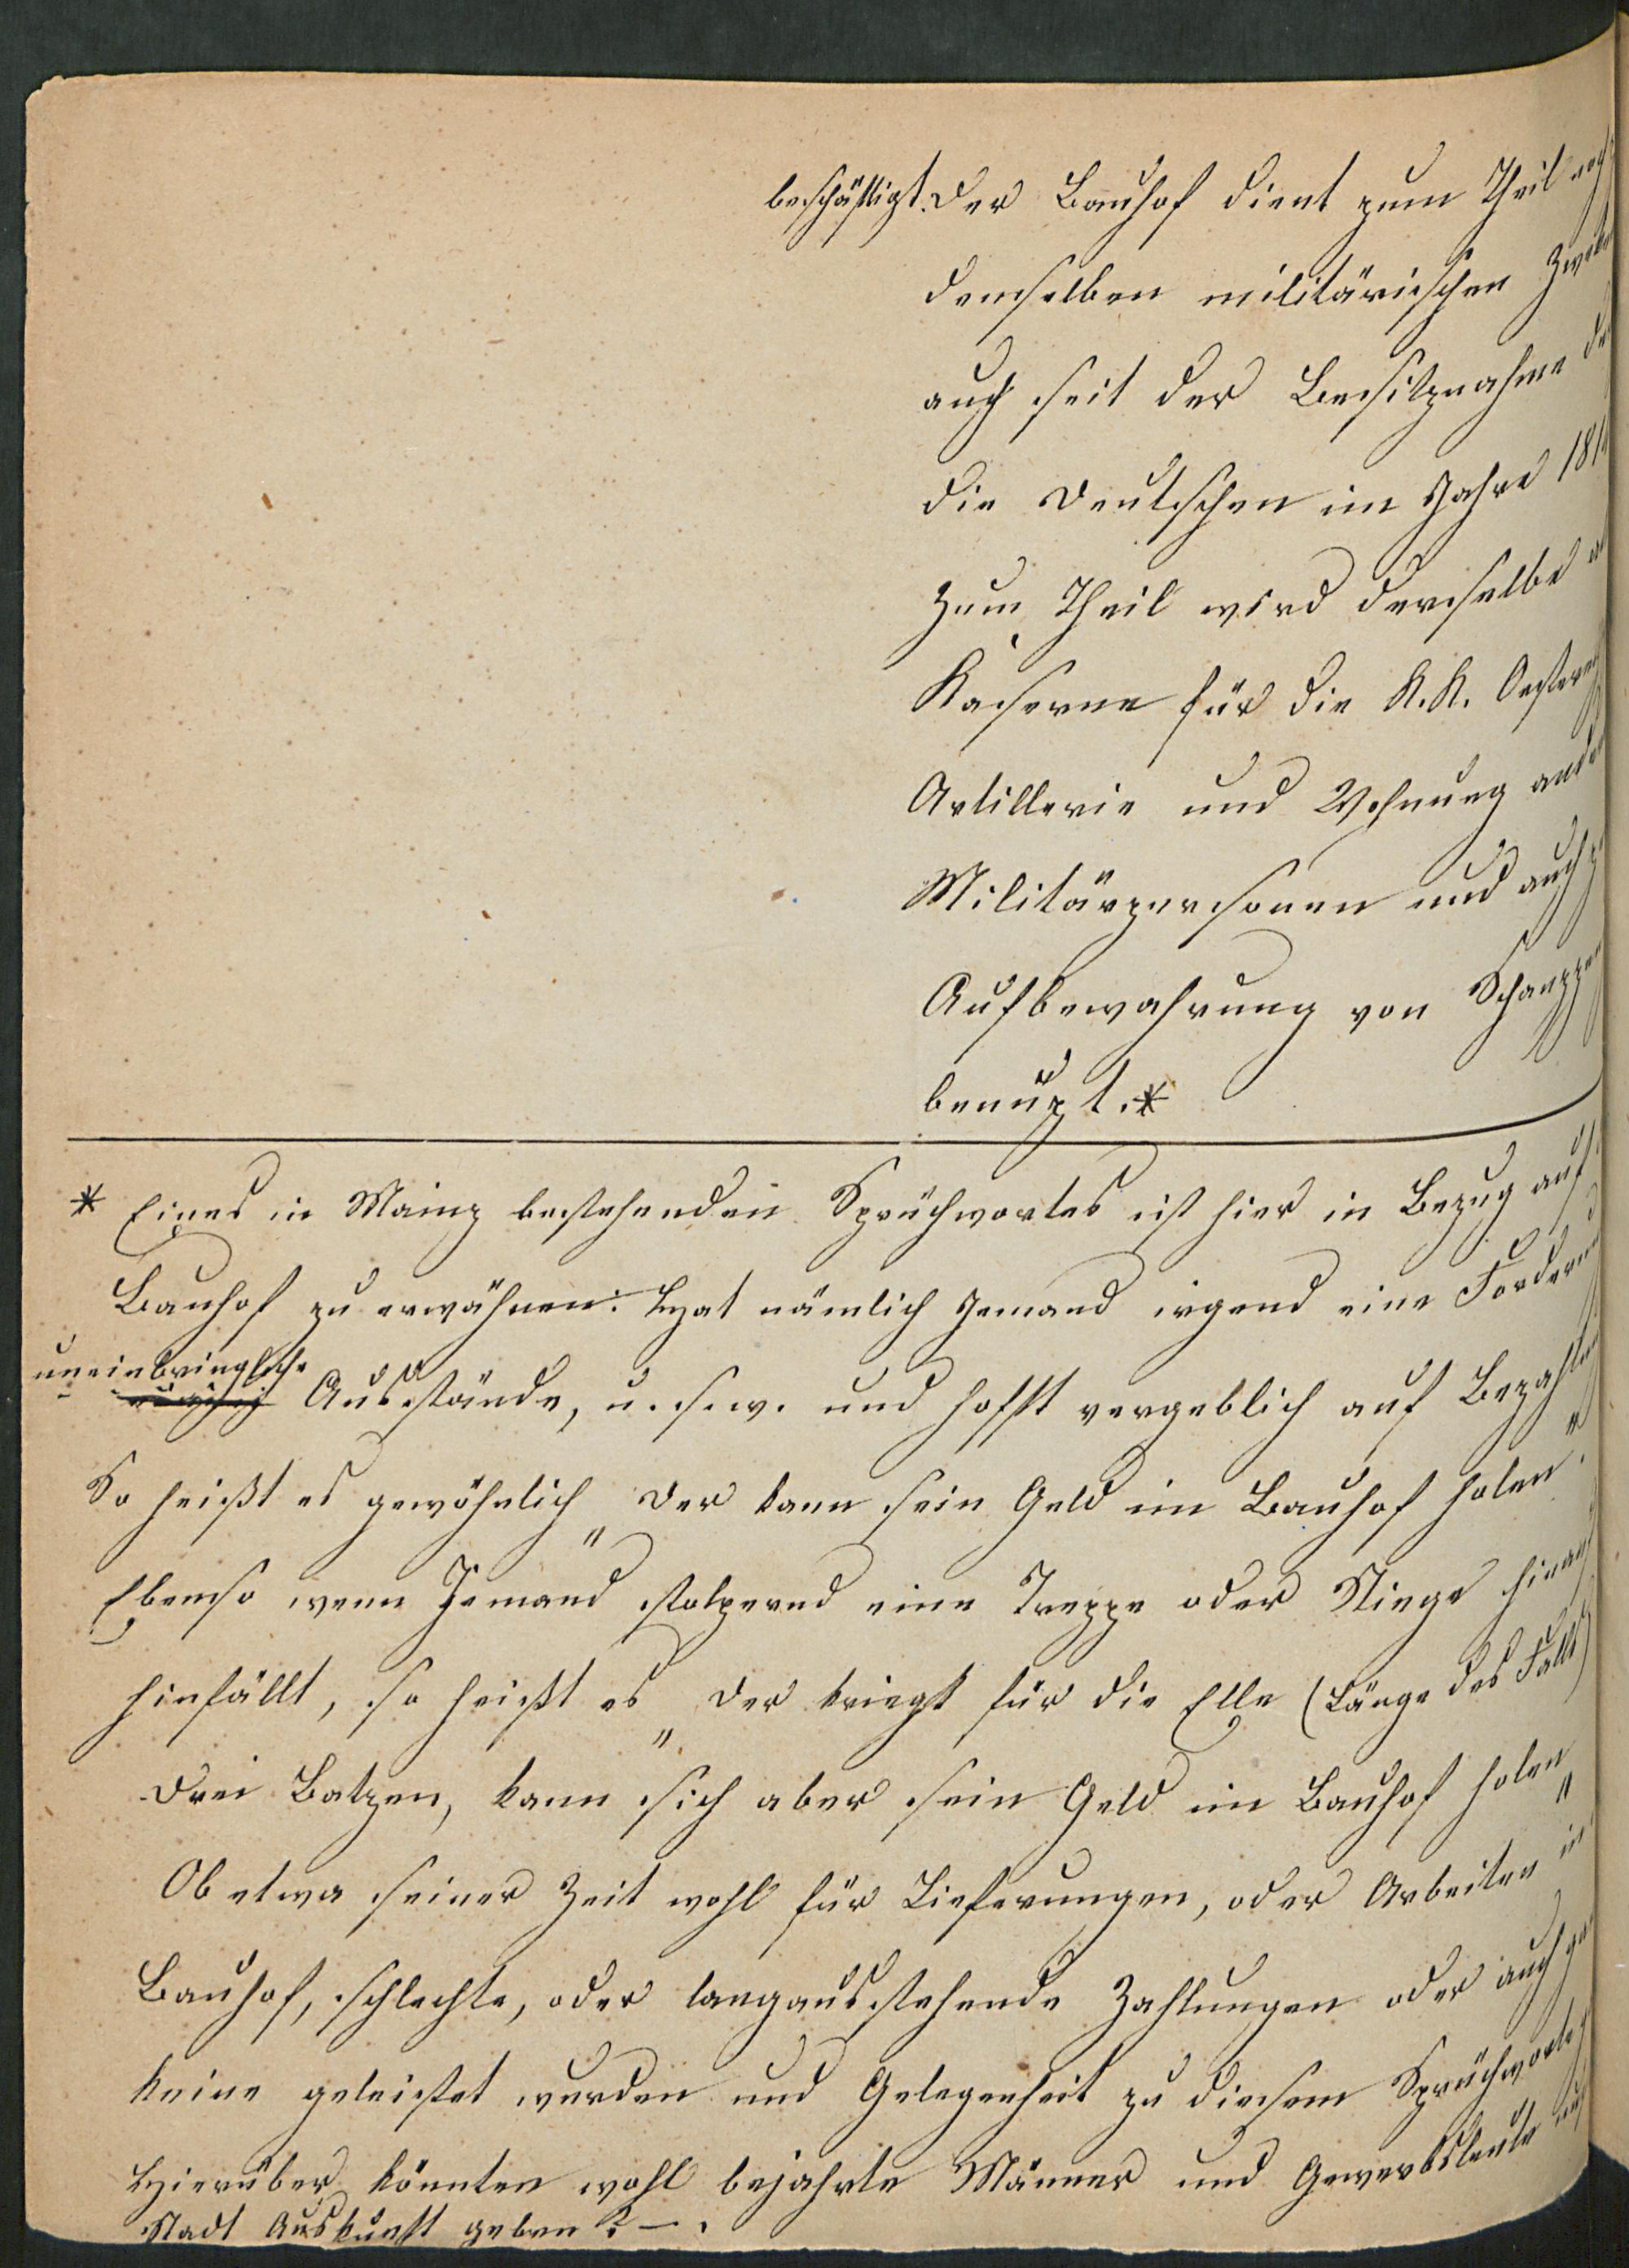 beschäftigt. Der Bauhof dient zum Theil noch
demselben militärischen Zwecke
auch seit der Besitznahme
die Deutschen im Jahre 181
Zum Theil wird derselbe
Kaserne für die K. K. Oesterrei
Artillerie und Wohnung ande
Militärpersonen und auch
Aufbewahrung von Schanzze
benützt. *
* Eines in Mainz bestehenden Sprüchwortes ist hier in Bezug auf
Bauhof zu erwähnen: Hat nämlich Jemand irgend eine Forderun
uneinbringliche
Ausstände, u. s. w. und hofft vergeblich auf Bezahlun
So heißt es gewöhnlich „Der kann sein Geld im Bauhof holen"
Ebenso wenn Jemand stolpernd eine Treppe oder Stiege hinau
hinfällt, so heißt es „Der kriegt für die Elle (Länge des Falls)
Drei Batzen, kann sich aber sein Geld im Bauhof holen"
Ob etwa seiner Zeit wohl für Lieferungen, oder Arbeiten in
Bauhof, schlechte, oder langausstehende Zahlungen oder auch ga
keine geleistet wurden und Gelegenheit zu diesem Sprüchworte
Hierüber könnten wohl bejahrte Männer und Gewerbsleute
Stadt Auskunft geben? — .